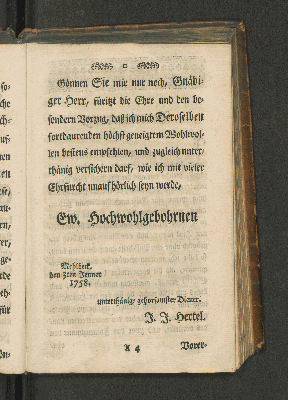 Gönnen Sie mir nur noch, Gnädi-
ger Herr, die Ehre und den be-
sondern Vorzug, daß ich mich Deroselben
fortdaurenden höchst geneigtem Wohlwol-
len bestens empfehlen, und zugleich unter-
thänig versichern darf, wie ich mit vieler
Ehrfurcht unaufhörlich seyn werde,
Ew. Hochwohlgebohrnen
den 3ten Jenner
1758.
unterthänig gehorsamster Diener.
J. J. Hertel.
A 4
Vorer-